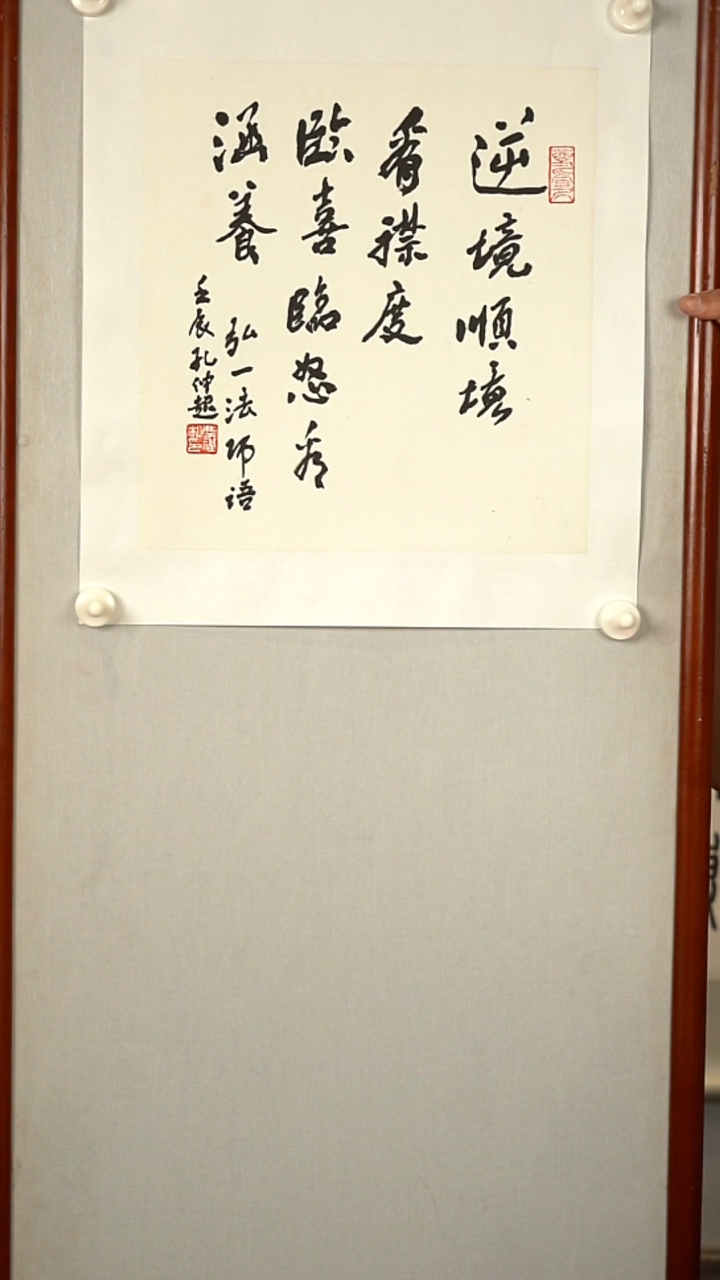 逆境順境
看襟度
臨喜臨怒看
涵養
弘一法師語
壬辰孔仲起